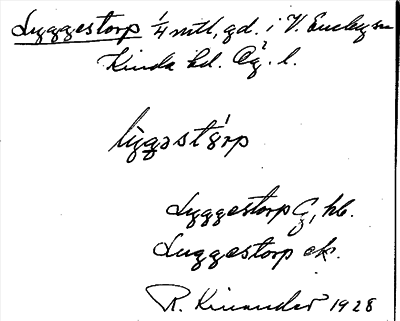 Lyggestorp 1/4 mtl, gd. i V. Eneby sn
Kinda hd. Ög. l.
lyggestorp
Lyggestorp G, hb.
Luggestorp ek.
R. Kinander 1928